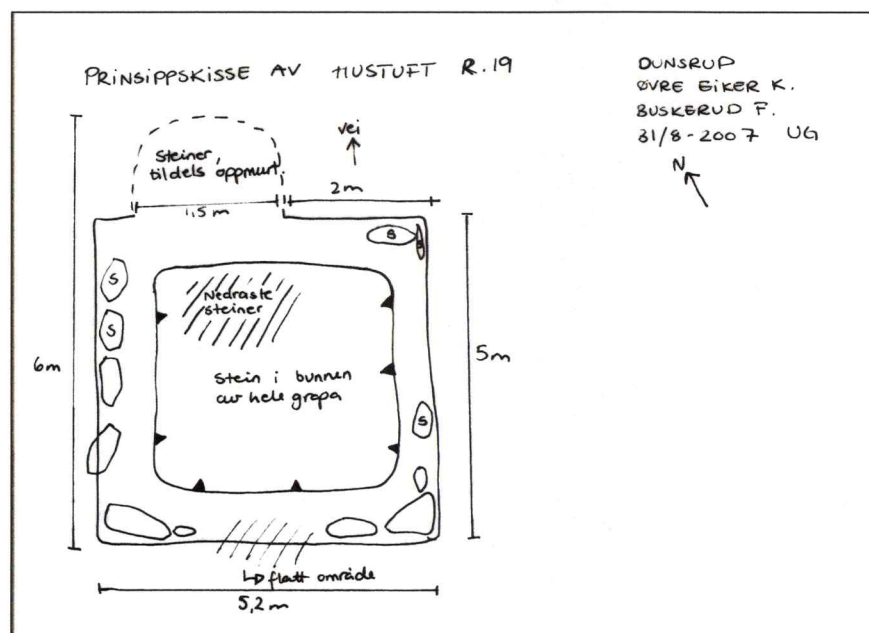 PRINSIPPSKISSE AV HUSTUFT R.19
DUNSRUD
ØVRE EIKER K.
BUSKERUD F.
31/8-2007 UG
N
vei
Steiner,
tildels oppmurt.
1,5 m
2m
S
S
S
S
Nedraste
steiner
6m
5m
Stein i bunnen
av hele gropa
S
flatt område
5,2 m